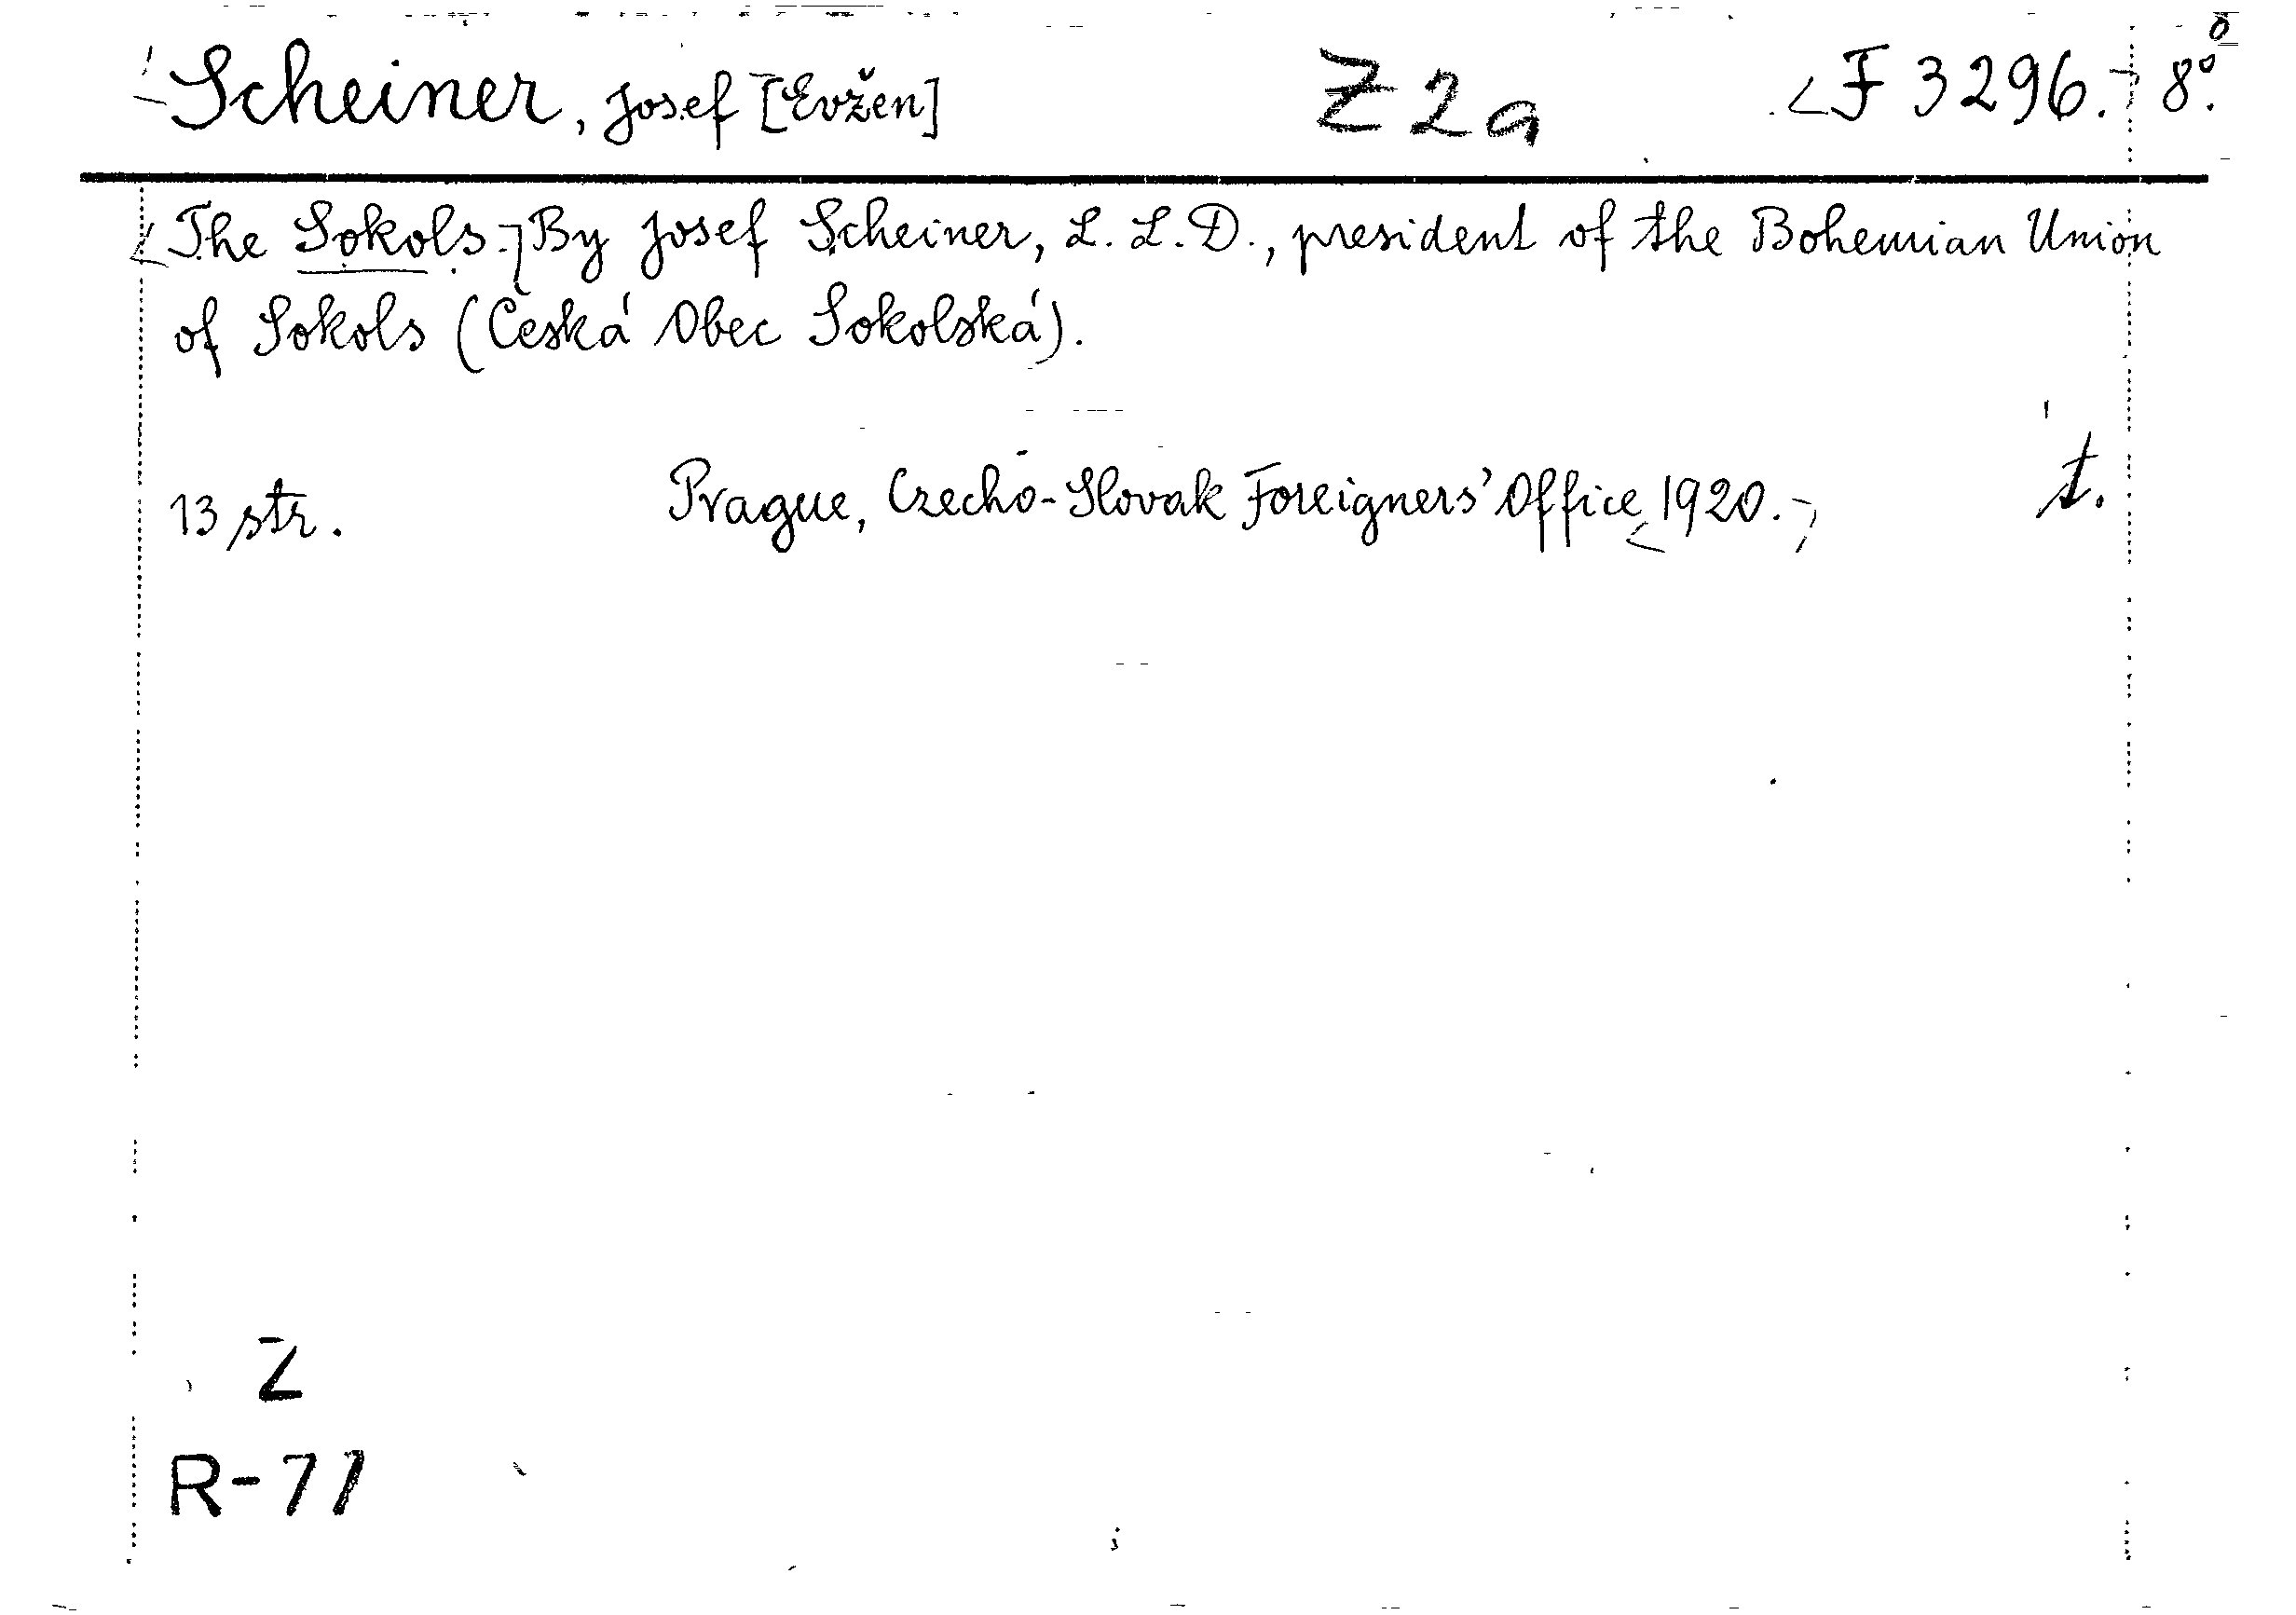 Scheiner, Josef [Evžen] Z 2a F 3296. 8°.
The Sokols. By Josef Scheiner, L. L. D., president of the Bohemian Union
of Sokols (Česká Obec Sokolská).
13 str. Prague, Czecho-Slovak Foreigners' Office 1920. t.
Z
R-71